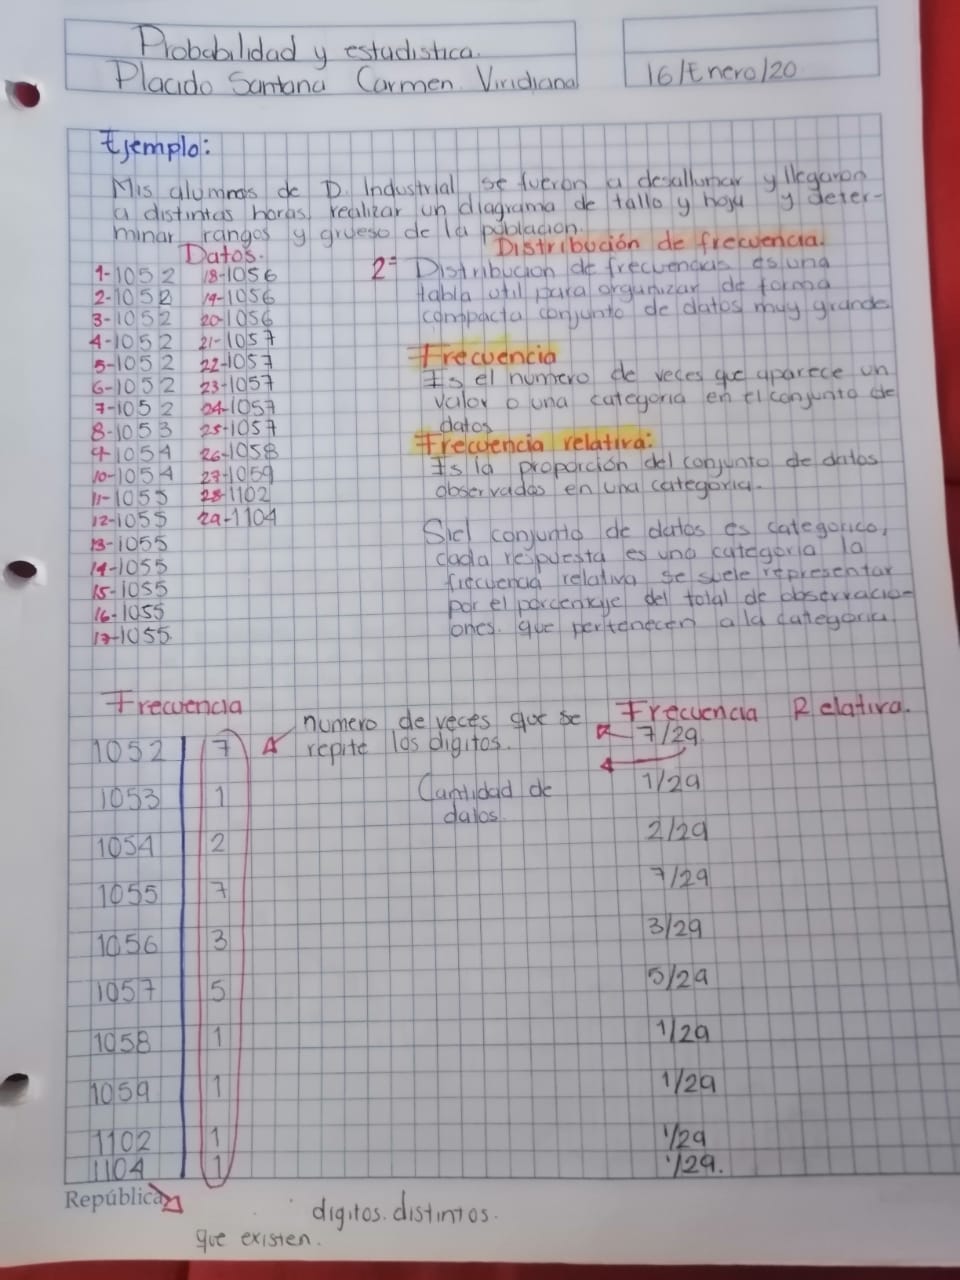 Probabilidad y estadistica.
Placido Santana Carmen Viridiana
16/Enero/20
Ejemplo:
Mis alumnos de D. Industrial, se fueron a desallunar y llegaron
a distintas horas, realizar un diagrama de tallo y hoja y deter-
minar rangos y grueso de la población.
Datos.
1-1052
2-1052
3-1052
4-1052
5-1052
6-1052
7-1052
8-1053
9-1054
10-1054
11-1055
12-1055
13-1055
14-1055
15-1055
16-1055
17-1055
18-1056
19-1056
20-1056
21-1057
22-1057
23-1057
24-1057
25-1057
26-1058
27-1059
28-1102
29-1104
Distribución de frecuencia.
2= Distribucion de frecuencias es una
tabla util para organizar de forma
compacta conjunto de datos muy grande
Frecuencia
Es el numero de veces que aparece un
valor o una categoria en el conjunto de
datos
Frecuencia relativa:
Es la proporción del conjunto de datos
observadas en una categoria.
Si el conjunto de datos es categorico,
cada respuesta es una categoria la
frecuencia relativa se suele representar
por el porcentaje del total de observacio-
ones. que pertenecen a la categoria.
Frecuencia
numero de veces que se
repite los digitos.
Frecuencia Relativa.
1052 7 7/29
Cantidad de
datos
1053 1 1/29
1054 2 2/29
1055 7 7/29
1056 3 3/29
1057 5 5/29
1058 1 1/29
1059 1 1/29
1102 1 1/29
1104 1 1/29.
República
digitos. distintos.
que existen.